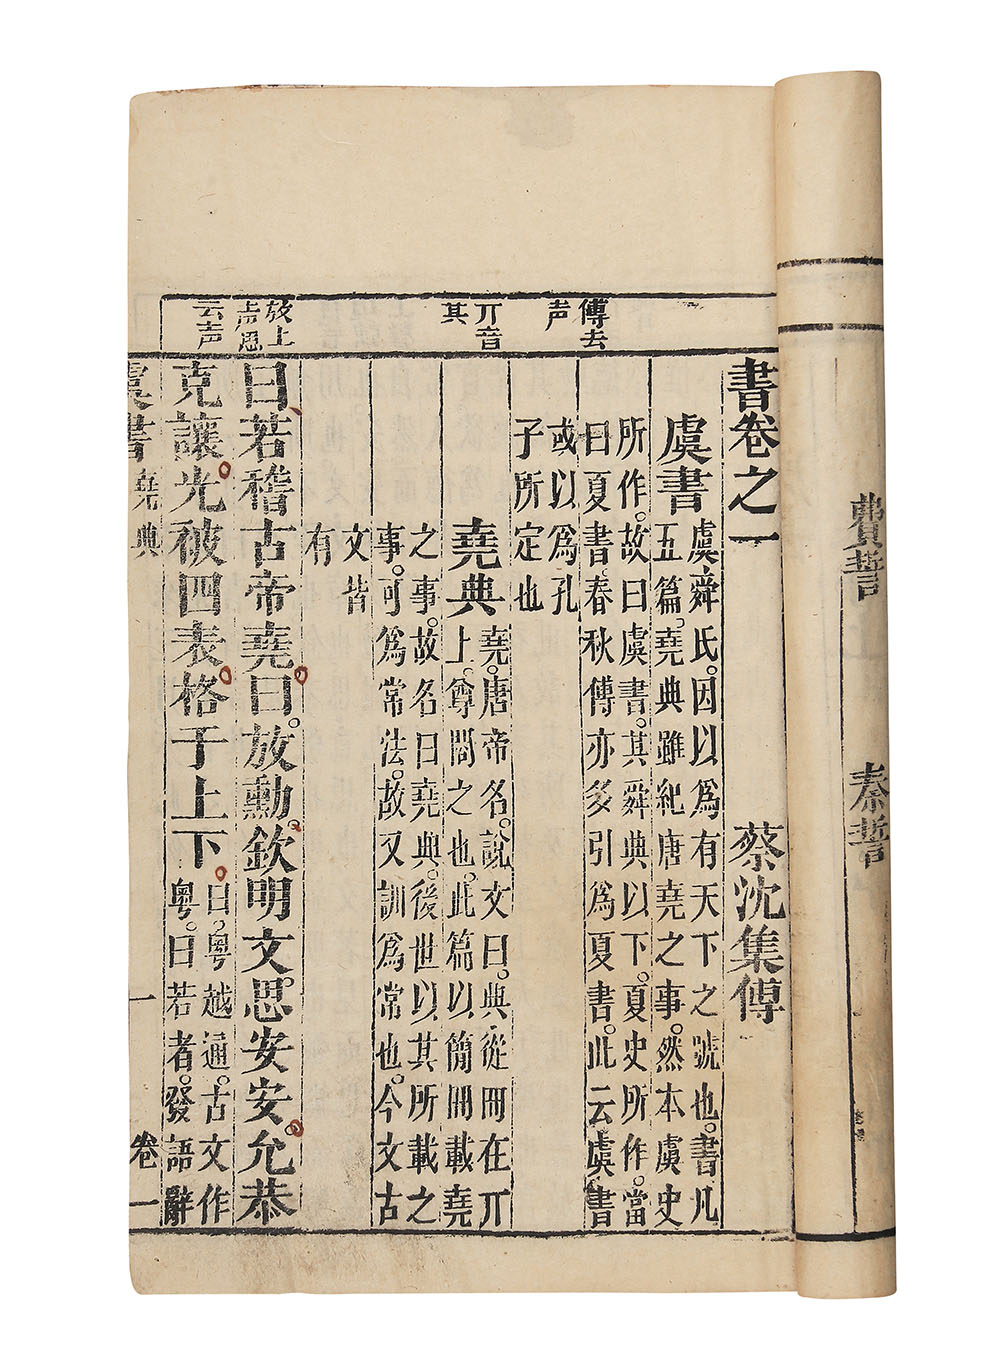 費誓
秦誓
書卷之一
蔡沈集傳
傳去
声
丌音
其
放上
云声
虞書
虞舜氏因以為有天下之號也書凡
五篇堯典雖紀唐堯之事然本虞史
所作故曰虞書其舜典以下夏史所作當
曰夏書春秋傳亦多引為夏書此云虞書
或以為孔
子所定也
堯典
堯唐帝名說文曰典從冊在丌
上尊閣之也此篇以簡冊載堯
之事故名曰堯典後世以其所載之
事可為常法故又訓為常也今文古
文皆
有
曰若稽古帝堯曰放勳欽明文思安安允恭
克讓光被四表格于上下
曰粵越通古文作
粵曰若者發語辭
虞書
堯典
一
卷一